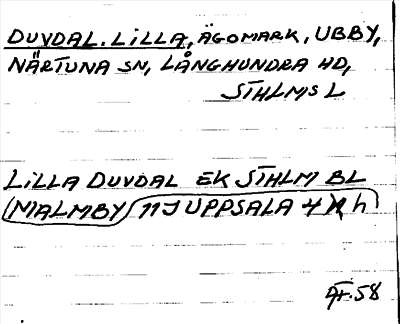 DUVDAL. LILLA, ÄGOMARK, UBBY,
NÄRTUNA SN, LÅNGHUNDRA HD,
STHLMS L
LILLA DUVDAL EK STHLM BL
(MALMBY) 11J UPPSALA 4 h
58